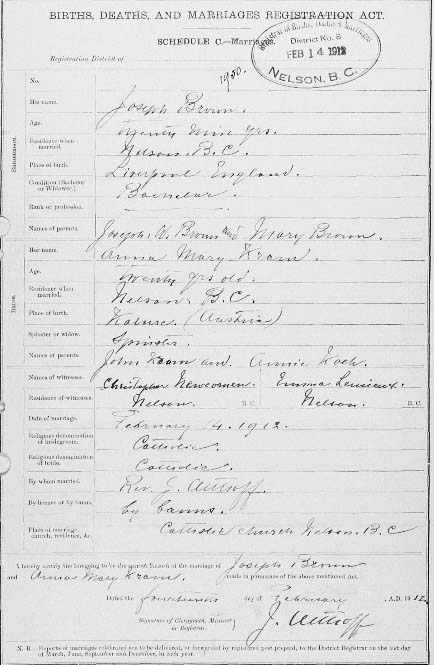 BIRTHS, DEATHS, AND MARRIAGES REGISTRATION ACT.
SCHEDULE C.—Marriages.
Registrar of Births, Deaths & Marriages
District No. 8
FEB 14 1912
NELSON, B.C.
Registration District of
No. 1950.
Bridegroom.
His name. Joseph Brown.
Age. Twenty nine yrs.
Residence when married. Nelson. B.C.
Place of birth. Liverpool England.
Condition (Bachelor or Widower.) Bachelor.
Rank or profession.
Names of parents. Joseph. W. Brown and Mary Brown.
Bride.
Her name. Anna Mary Kram.
Age. twenty yrs old.
Residence when married. Nelson. B.C.
Place of birth. (Austria)
Spinster or widow. Spinster.
Names of parents. John Kram and. Annie Koch.
Names of witnesses. Christopher Newcomen. Emma Lemieux.
Residence of witnesses. Nelson. B.C. Nelson. B.C.
Date of marriage. February 14. 1912.
Religious denomination of bridegroom. Catholic.
Religious denomination of bride. Catholic.
By whom married. Rev. J. Althoff.
By licence or by banns. by banns.
Place of marriage, church, residence, &c. Catholic church Nelson. B.C
I hereby certify the foregoing to be the correct Record of the marriage of Joseph Brown
and Anna Mary Kram. made in pursuance of the above mentioned Act.
Dated the fourteenth day of February A.D. 1912
Signature of Clergyman, Minister or Registrar. J. Althoff
N. B. Reports of marriages celebrated are to be delivered, or forwarded by registered post prepaid, to the District Registrar on the last day
of March, June, September and December, in each year.